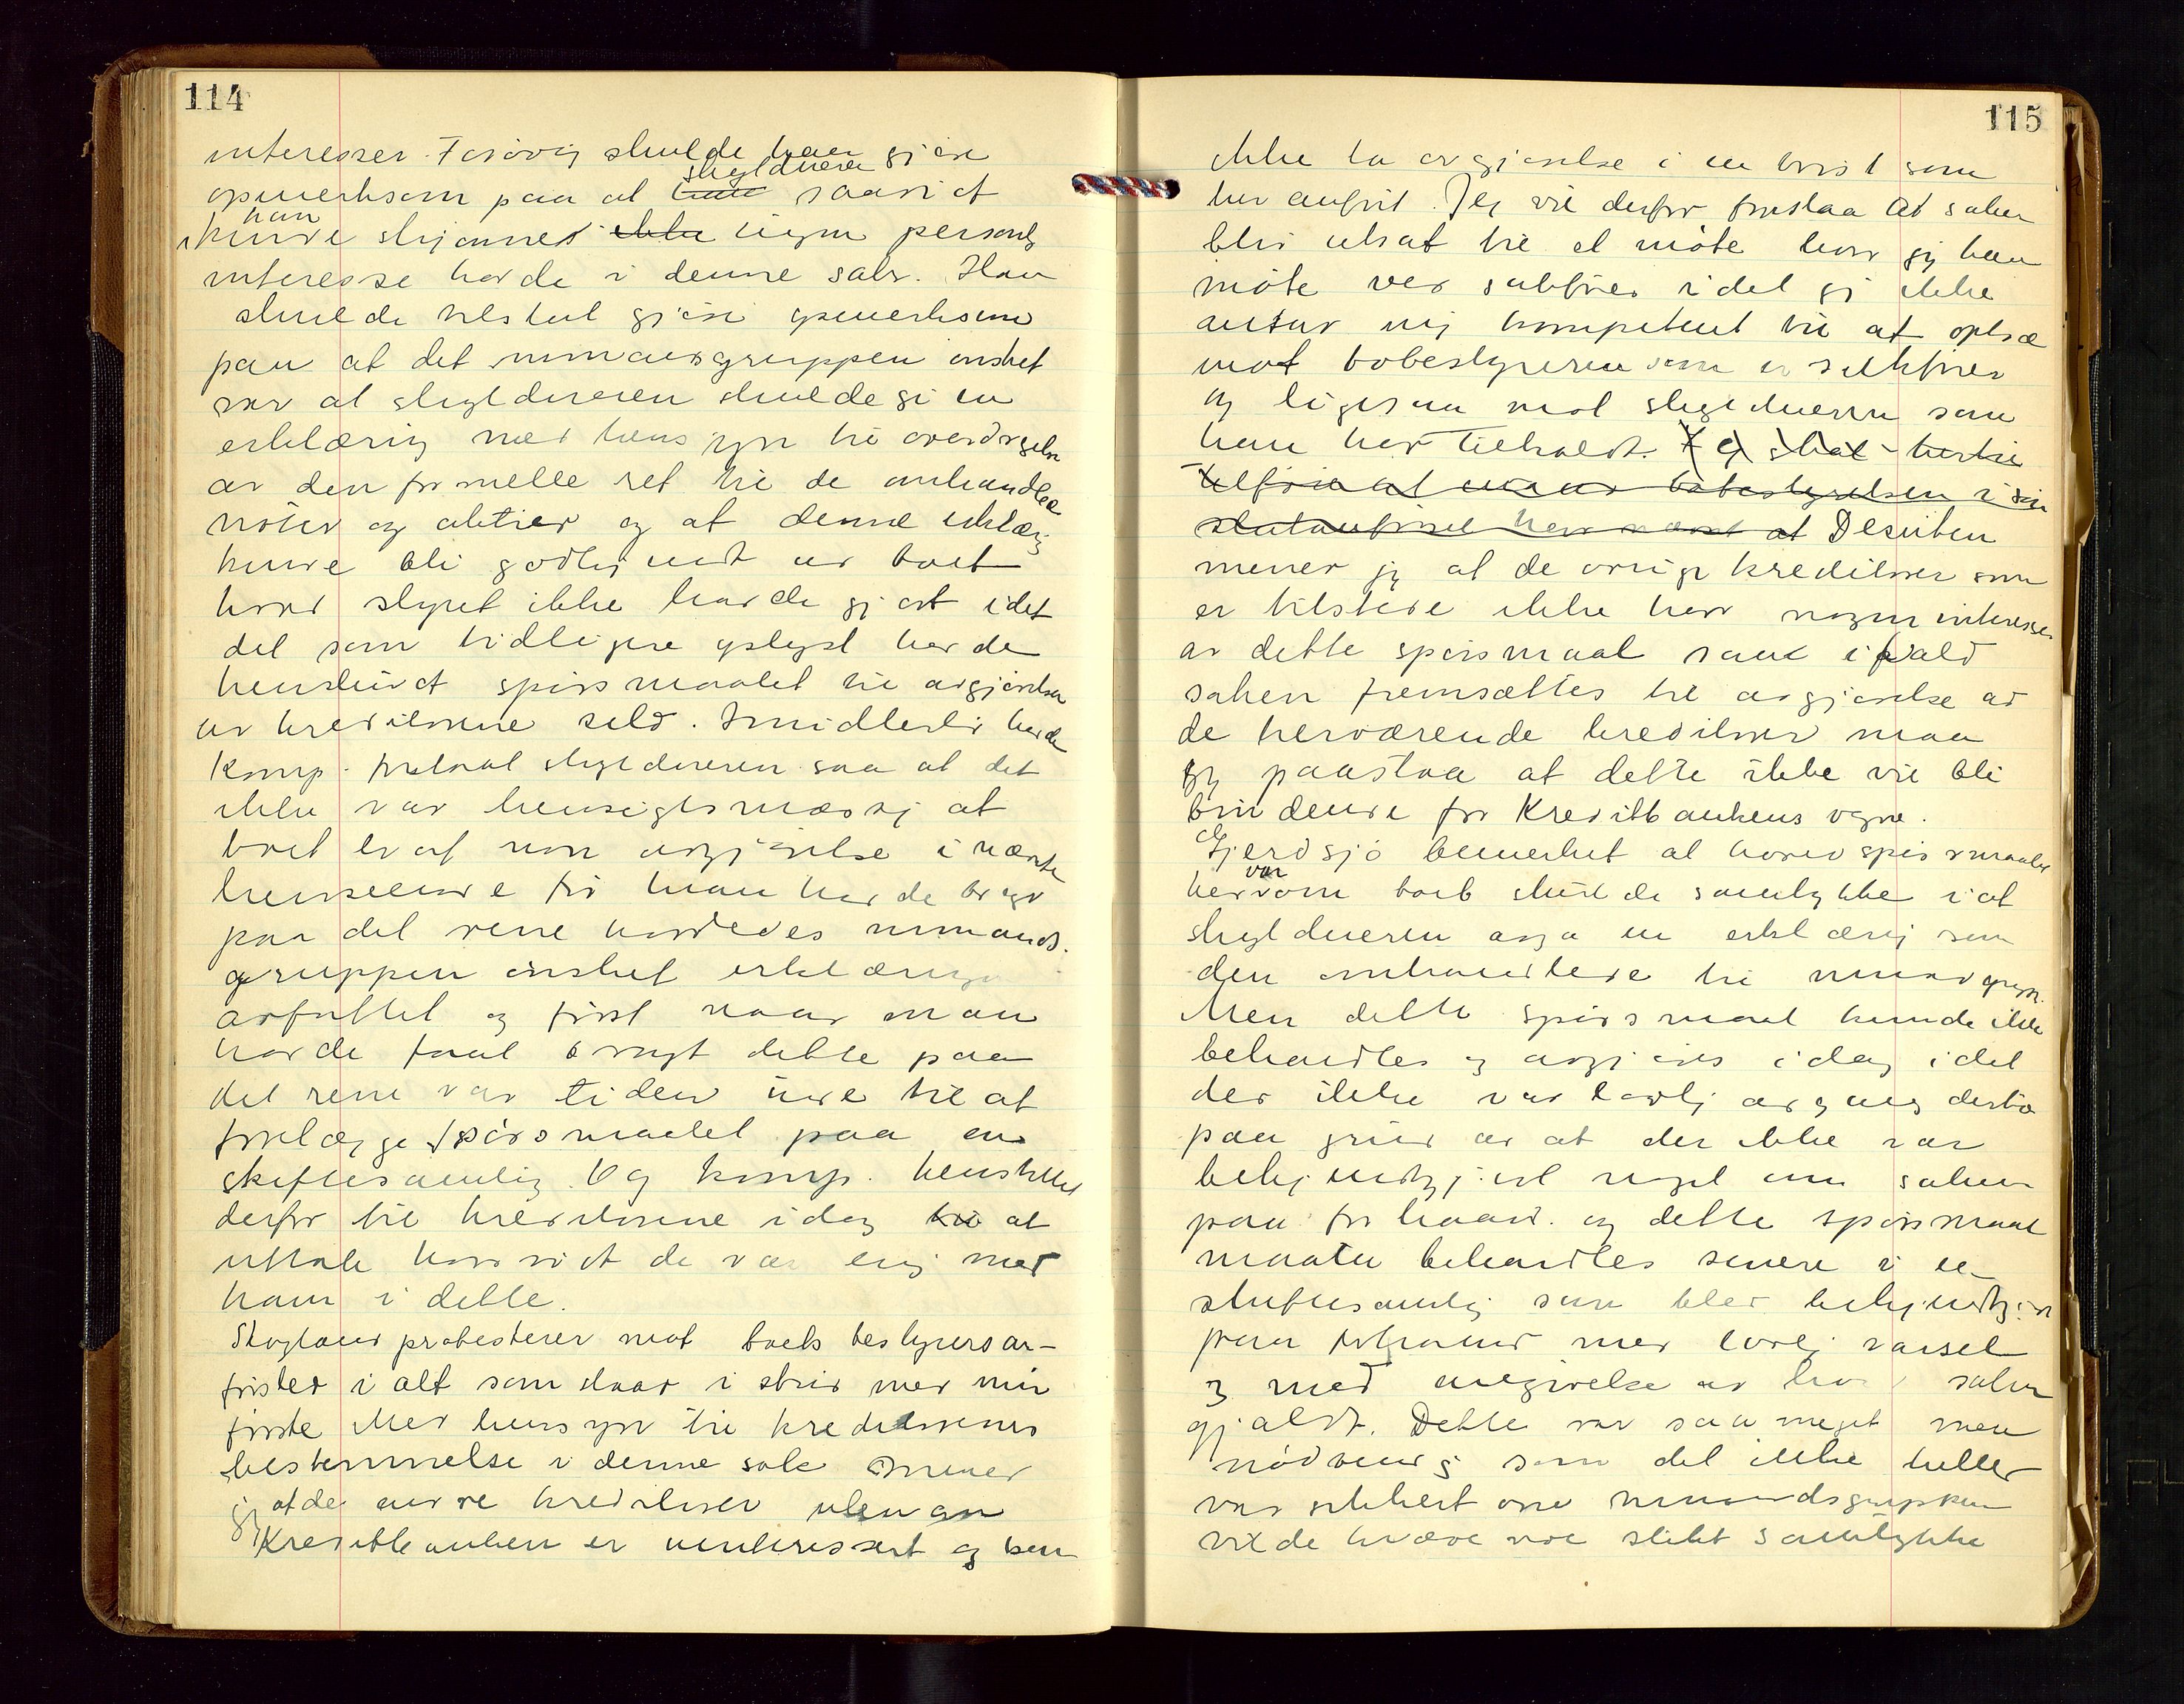 114
interesser. Forøvrig skulde han gjøre
opmerksom paa at skyldneren saavidt
han kunde skjønnes ikke nogen personlig
interesse hadde i denne sak. Han
skulde tilslut gjøre opmerksom
paa at det mmandsgruppen ønsket
var at skyldneren skulde gi en
erklæring med hensyn til overdragelse
av den formelle ret til de omhandlede
nøter og aktier og at denne erklæring
kunde bli godkjendt av boet
hvad styret ikke hadde gjort idet
det som tidligere oplyst hadde
henskudt spørsmaalet til avgjørelse
av kreditorene selv. Imidlertid hadde
Komp. fortalt skyldneren saa at det
ikke var hensigtsmæssig at
boet traf non avgjørelse i nævnte
henseende før man hadde bragt
paa det rene hvorledes mmands-
gruppen ønsket erklæringen
avfattet og først naar man
hadde faat bragt dette paa
det rene var tiden inde til at
forelægge spørsmaalet paa en
skiftesamling. Og komp. henstillet
derfor til kreditorene idag til at
uttale hvorvidt de var enig med
ham i dette.
Skogland protesterer mot boets bestyrers an-
førsler i alt som staar i strid med min
første. Med hensyn til kreditorenes
bestemmelse i denne sak mener
jeg at de andre kreditorer uten om
Kreditbanken er uinteressert og kan
115
ikke ta avgjørelse i en tvist som
her anført. Jeg vil derfor foreslaa at saken
blir utsat til et møte hvor jeg kan
møte ved sakfører idet jeg ikke
antar mig kompetent til at optræ
mot bobestyreren som er sakfører
og ligesaa mot skyldneren som
han har tilholdt. Jeg skal hertil
tilføie at naar bobestyrelsen i sin
sluttanførsel har nævnt at Desuten
mener jeg at de øvrige kreditorer som
er tilstede ikke har nogen interesse
av dette spørsmaal samt ifald
saken fremsættes til avgjørelse av
de herværende kreditorer maa
jeg paastaa at dette ikke vil bli
bindende for Kreditbankens vegne.
Gjerdsjø bemerket at hovedspørsmaalet
her var om boet skulde samtykke i at
skyldneren avga en erklæring som
den omhandlede til mmandsgrupp.
Men dette spørsmaal kunde ikke
behandles og avgjøres idag idet
der ikke var lovlig adgang dertil
paa grund av at der ikke var
bekjendtgjort noget om saken
paa forhaand. og dette spørsmaal
maatte behandles senere i en
skiftesamling som blev bekjendtgjort
paa forhaand med lovlig varsel
og med angivelse av hvad saken
gjaldt. Dette var saa meget mere
nødvendig som det ikke heller
var sikkert om mmandsgruppen
vilde kræve noe slikt samtykke